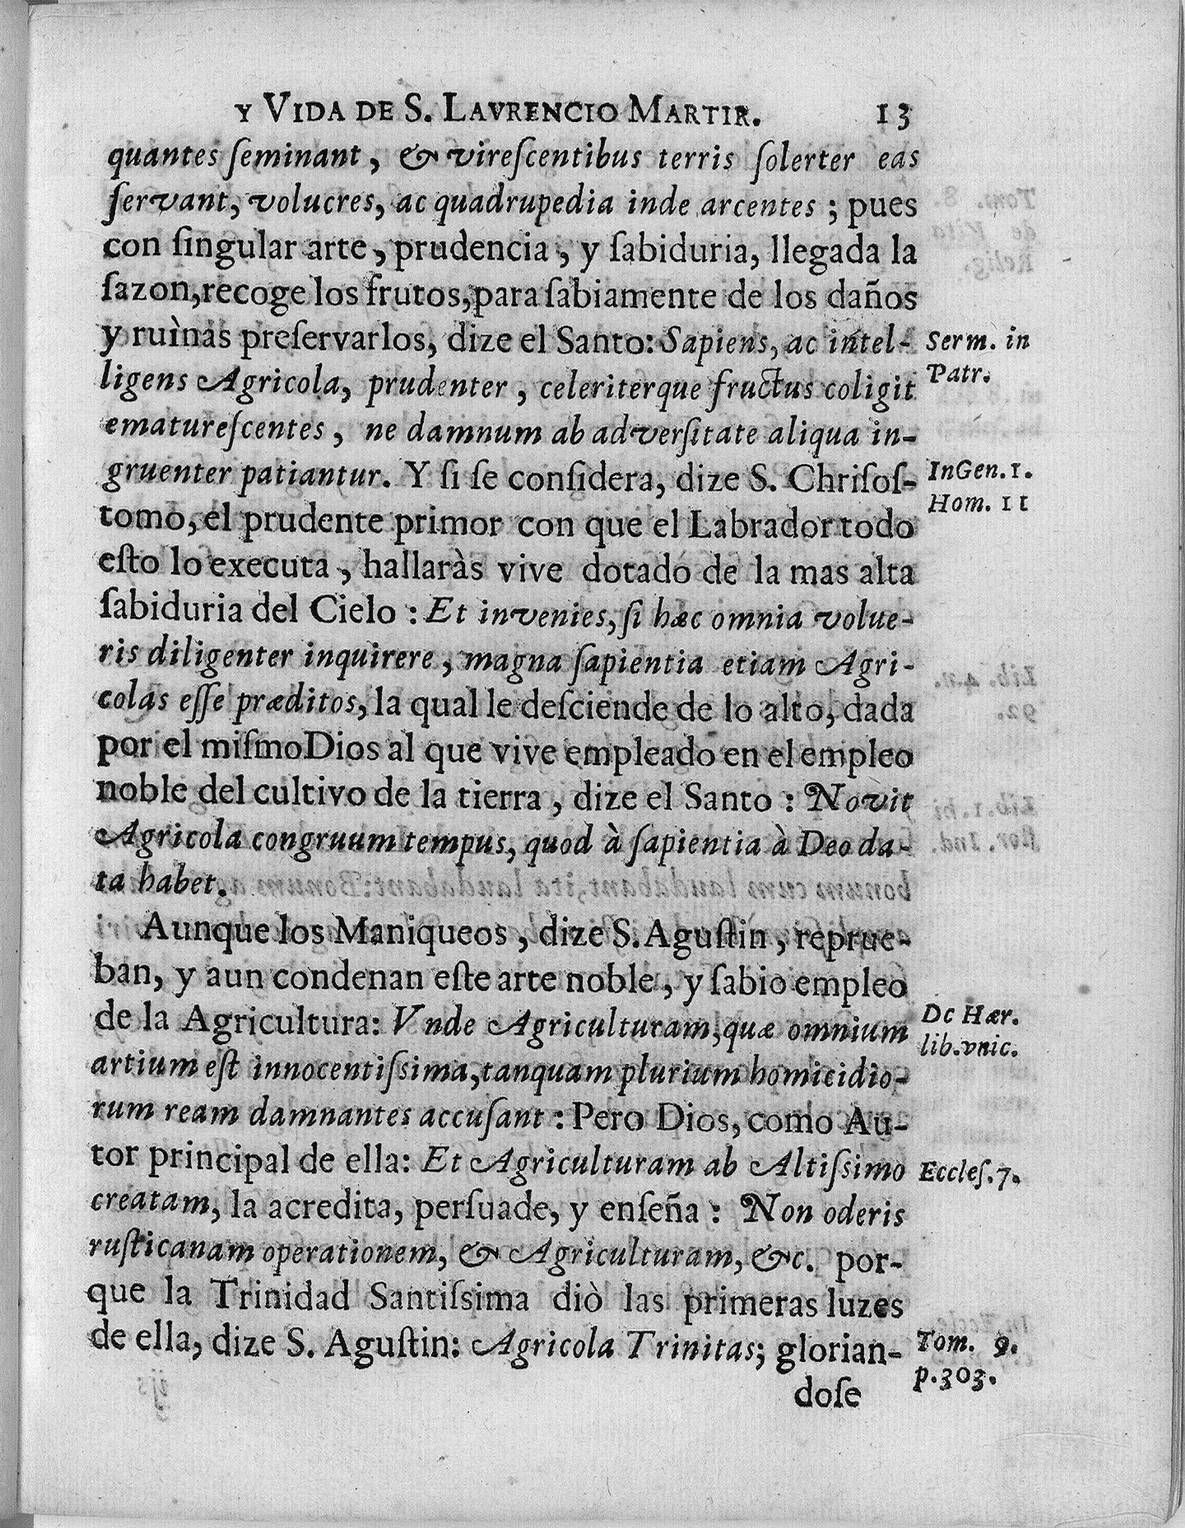 Y VIDA DE S. LAVRENCIO MARTIR. 13
quantes ſeminant, & vireſcentibus terris ſolerter eas
ſervant, volucres, ac quadrupedia inde arcentes; pues
con ſingular arte, prudencia, y ſabiduria, llegada la
ſazon, recoge los frutos, para ſabiamente de los daños
y ruìnas preſervarlos, dize el Santo: Sapiens, ac intel-
Serm. in
ligens Agricola, prudenter, celeriterque fructus coligit
Patr.
ematureſcentes, ne damnum ab adverſitate aliqua in-
gruenter patiantur. Y ſi ſe conſidera, dize S. Chriſoſ-
InGen.1.
Hom. 11
tomo, el prudente primor con que el Labrador todo
eſto lo executa, hallaràs vive dotado de la mas alta
ſabiduria del Cielo: Et invenies, ſi hæc omnia volue-
ris diligenter inquirere, magna ſapientia etiam Agri-
colas eſſe præditos, la qual le deſciende de lo alto, dada
por el miſmo Dios al que vive empleado en el empleo
noble del cultivo de la tierra, dize el Santo: Novit
Agricola congruum tempus, quod à ſapientia à Deo da-
ta habet.
Aunque los Maniqueos, dize S. Aguſtin, reprue-
ban, y aun condenan eſte arte noble, y ſabio empleo
de la Agricultura: Vnde Agriculturam, quæ omnium
De Hær.
lib.vnic.
artium eſt innocentiſsima, tanquam plurium homicidio-
rum ream damnantes accuſant: Pero Dios, como Au-
tor principal de ella: Et Agriculturam ab Altiſsimo
Eccleſ.7.
creatam, la acredita, perſuade, y enſeña: Non oderis
ruſticanam operationem, & Agriculturam, &c. por-
que la Trinidad Santiſsima diò las primeras luzes
de ella, dize S. Aguſtin: Agricola Trinitas; glorian-
Tom. 9.
p.303.
doſe